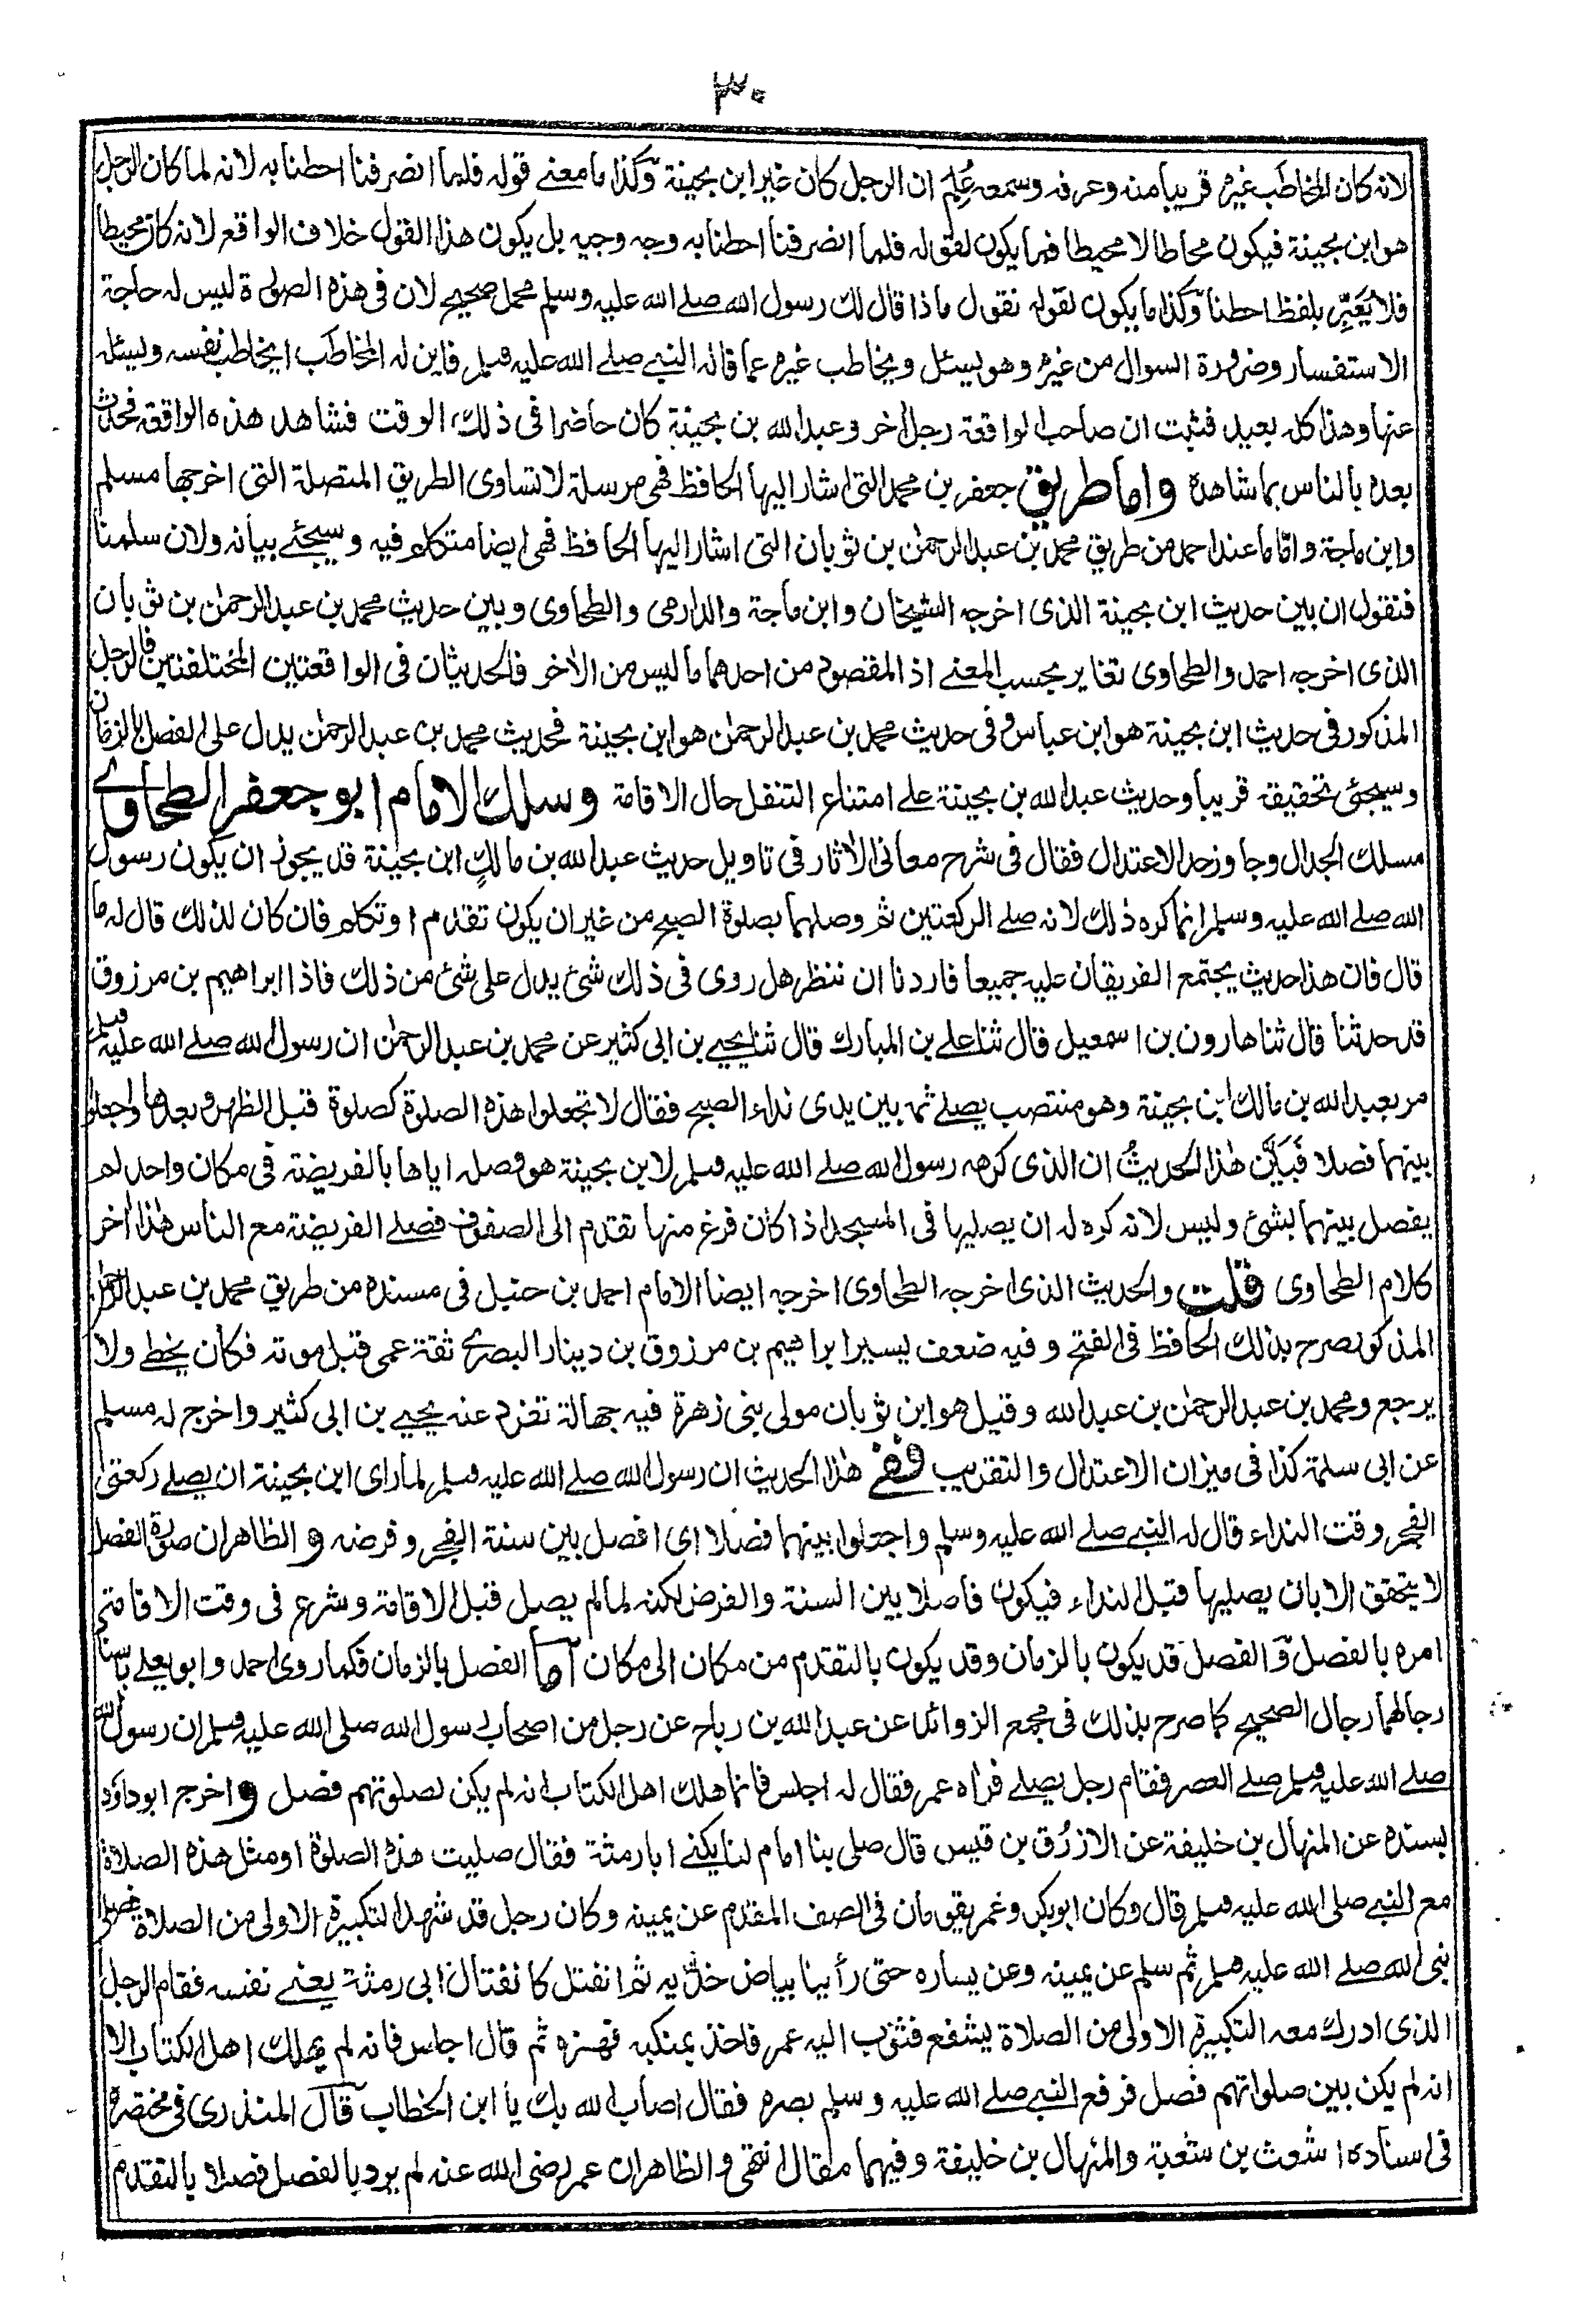 ٣٠
لانه كان المخاطَب غيره قريبا منه وعرفه وسمعه عُلِم ان الرجل كان غير ابن بحينة وكذا ما معنى قوله فلما انصرفنا احطنا به لانه لما كان الرجل
هو ابن بحينة فيكون محاطا لا محيطا فما يكون لقوله فلما انصرفنا احطنا به وجه وجيه بل يكون هذا القول خلاف الواقع لانه كان محيطا
فلا يُعَبِّر بلفظ احطنا وكذا ما يكون لقوله نقول ماذا قال لك رسول الله صلے الله عليه وسلم محمل صحيح لان فى هذه الصورة ليس له حاجة
الاستفسار وضرورة السوال من غيره وهو يسئل ويخاطب غيره عما قاله النبي صلے الله عليه وسلم فاين له المخاطَب ايخاطب نفسه ويسئله
عنها وهذا كله بعيد فثبت ان صاحب الواقعة رجل اخر وعبد الله بن بحينة كان حاضرا فى ذلك الوقت فشاهد هذه الواقعة فحدث
بعده بالناس بما شاهده واما طريق جعفر بن محمد التى اشار اليها الحافظ فهى مرسلة لا تساوى الطريق المتصلة التى اخرجها مسلم
وابن ماجة واما ما عند احمد من طريق محمد بن عبد الرحمٰن بن ثوبان التى اشار اليها الحافظ فهى ايضا متكلم فيه وسيجئ بيانه ولان سلمنا
فنقول ان بين حديث ابن بحينة الذى اخرجه الشيخان وابن ماجة والدارمى والطحاوى وبين حديث محمد بن عبد الرحمٰن بن ثوبان
الذى اخرجه احمد والطحاوى تغاير بحسب المعنے اذ المقصود من احدهما ما ليس من الاٰخر فالحديثان فى الواقعتين المختلفتين فالرجل
المذكور فى حديث ابن بحينة هو ابن عباس وفى حديث محمد بن عبد الرحمٰن هو ابن بحينة فحديث محمد بن عبد الرحمٰن يدل على الفصل بالزمان
وسيجئ تحقيقه قريبا وحديث عبد الله بن بحينة على امتناع التنفل حال الاقامة وسلك الامام ابو جعفر الطحاوے
مسلك الجدال وجاوز حد الاعتدال فقال فى شرح معانى الاٰثار فى تاويل حديث عبد الله بن مالكٍ ابن بحينة قد يجوز ان يكون رسول
الله صلے الله عليه وسلم انما كره ذلك لانه صلے الركعتين ثم وصلهما بصلوة الصبح من غير ان يكون تقدم او تكلم فان كان لذلك قال له ما
قال فان هذا حديث يجتمع الفريقان عليه جميعا فاردنا ان ننظر هل روى فى ذلك شئ يدل على شئ من ذلك فاذا ابراهيم بن مرزوق
قد حدثنا قال ثنا هارون بن اسمعيل قال ثنا على بن المبارك قال ثنا يحيے بن ابى كثير عن محمد بن عبد الرحمٰن ان رسول الله صلے الله عليه وسلم
مر بعبد الله بن مالك ابن بحينة وهو منتصب يصلے ثمه بين يدى نداء الصبح فقال لا تجعلوا هذه الصلوة كصلوة قبل الظهر وبعدها واجعلوا
بينهما فصلا فبَيَّن هٰذا الحديثُ ان الذى كرهه رسول الله صلے الله عليه وسلم لابن بحينة هو وصله اياها بالفريضة فى مكان واحد لم
يفصل بينهما بشئ وليس لانه كره له ان يصليها فى المسجد اذا كان فرغ منها تقدم الى الصفوف فصلے الفريضة مع الناس هٰذا اٰخر
كلام الطحاوى قلت والحديث الذى اخرجه الطحاوى اخرجه ايضا الامام احمد بن حنبل فى مسنده من طريق محمد بن عبد الرحمٰن
المذكور صرح بذلك الحافظ فى الفتح وفيه ضعف يسير ابراهيم بن مرزوق بن دينار البصرى ثقة عمى قبل موته فكان يخطے ولا
يرجع ومحمد بن عبد الرحمٰن بن عبد الله وقيل هو ابن ثوبان مولى بنى زهرة فيه جهالة تفرد عنه يحيے بن ابى كثير واخرج له مسلم
عن ابى سلمة كذا فى ميزان الاعتدال والتقريب ففے هٰذا الحديث ان رسول الله صلے الله عليه وسلم لما راى ابن بحينة ان يصلے ركعتى
الفجر وقت النداء قال له النبي صلے الله عليه وسلم واجعلوا بينهما فصلا اى افصل بين سنة الفجر وفرضه و الظاهر ان صورة الفصل
لا يتحقق الا بان يصليها قبل النداء فيكون فاصلا بين السنة والفرض لكنه لما لم يصل قبل الاقامة وشرع فى وقت الاقامة
امره بالفصل وَّ الفصل قد يكون بالزمان وقد يكون بالتقدم من مكان الى مكان اما الفصل بالزمان فكما روى احمد وابو يعلے باسناد
رجالهما رجال الصحيح كما صرح بذلك فى مجمع الزوائد عن عبد الله بن رباح عن رجل من اصحاب رسول الله صلى الله عليه وسلم ان رسول الله
صلے الله عليه وسلم صلے العصر فقام رجل يصلے فراٰه عمر فقال له اجلس فانما هلك اهل الكتاب انه لم يكن لصلوتهم فصل و اخرج ابو داؤد
بسنده عن المنهال بن خليفة عن الازرُق بن قيس قال صلى بنا امام لنا يكنے ابا رمثة فقال صليت هذه الصلوة او مثل هذه الصلاة
مع النبي صلى الله عليه وسلم قال وكان ابوبكر وعمر يقومان فى الصف المقدم عن يمينه وكان رجل قد شهد التكبيرة الاولى من الصلاة فصلى
نبى الله صلے الله عليه وسلم ثم سلم عن يمينه وعن يساره حتى رأينا بياض خديه ثم انفتل كانفتال ابى رمثة يعنے نفسه فقام الرجل
الذى ادرك معه التكبيرة الاولى من الصلاة يشفع فوثب اليه عمر فاخذ بمنكبه فهزه ثم قال اجلس فانه لم يهلك اهل الكتاب الا
انه لم يكن بين صلواتهم فصل فرفع النبي صلے الله عليه وسلم بصره فقال اصاب الله بك يا ابن الخطاب قال المنذرى فى مختصره
فى اسناده اشعث بن شعبة والمنهال بن خليفة وفيهما مقال انتهى و الظاهر ان عمر رضى الله عنه لم يرد بالفصل فصلا بالتقدم